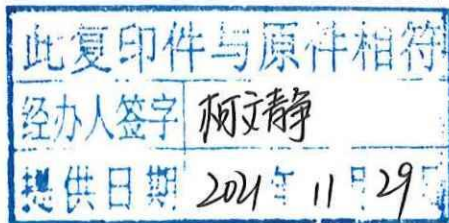 此复印件与原件相符
经办人签字 柯文静
提供日期 2021年11月29日